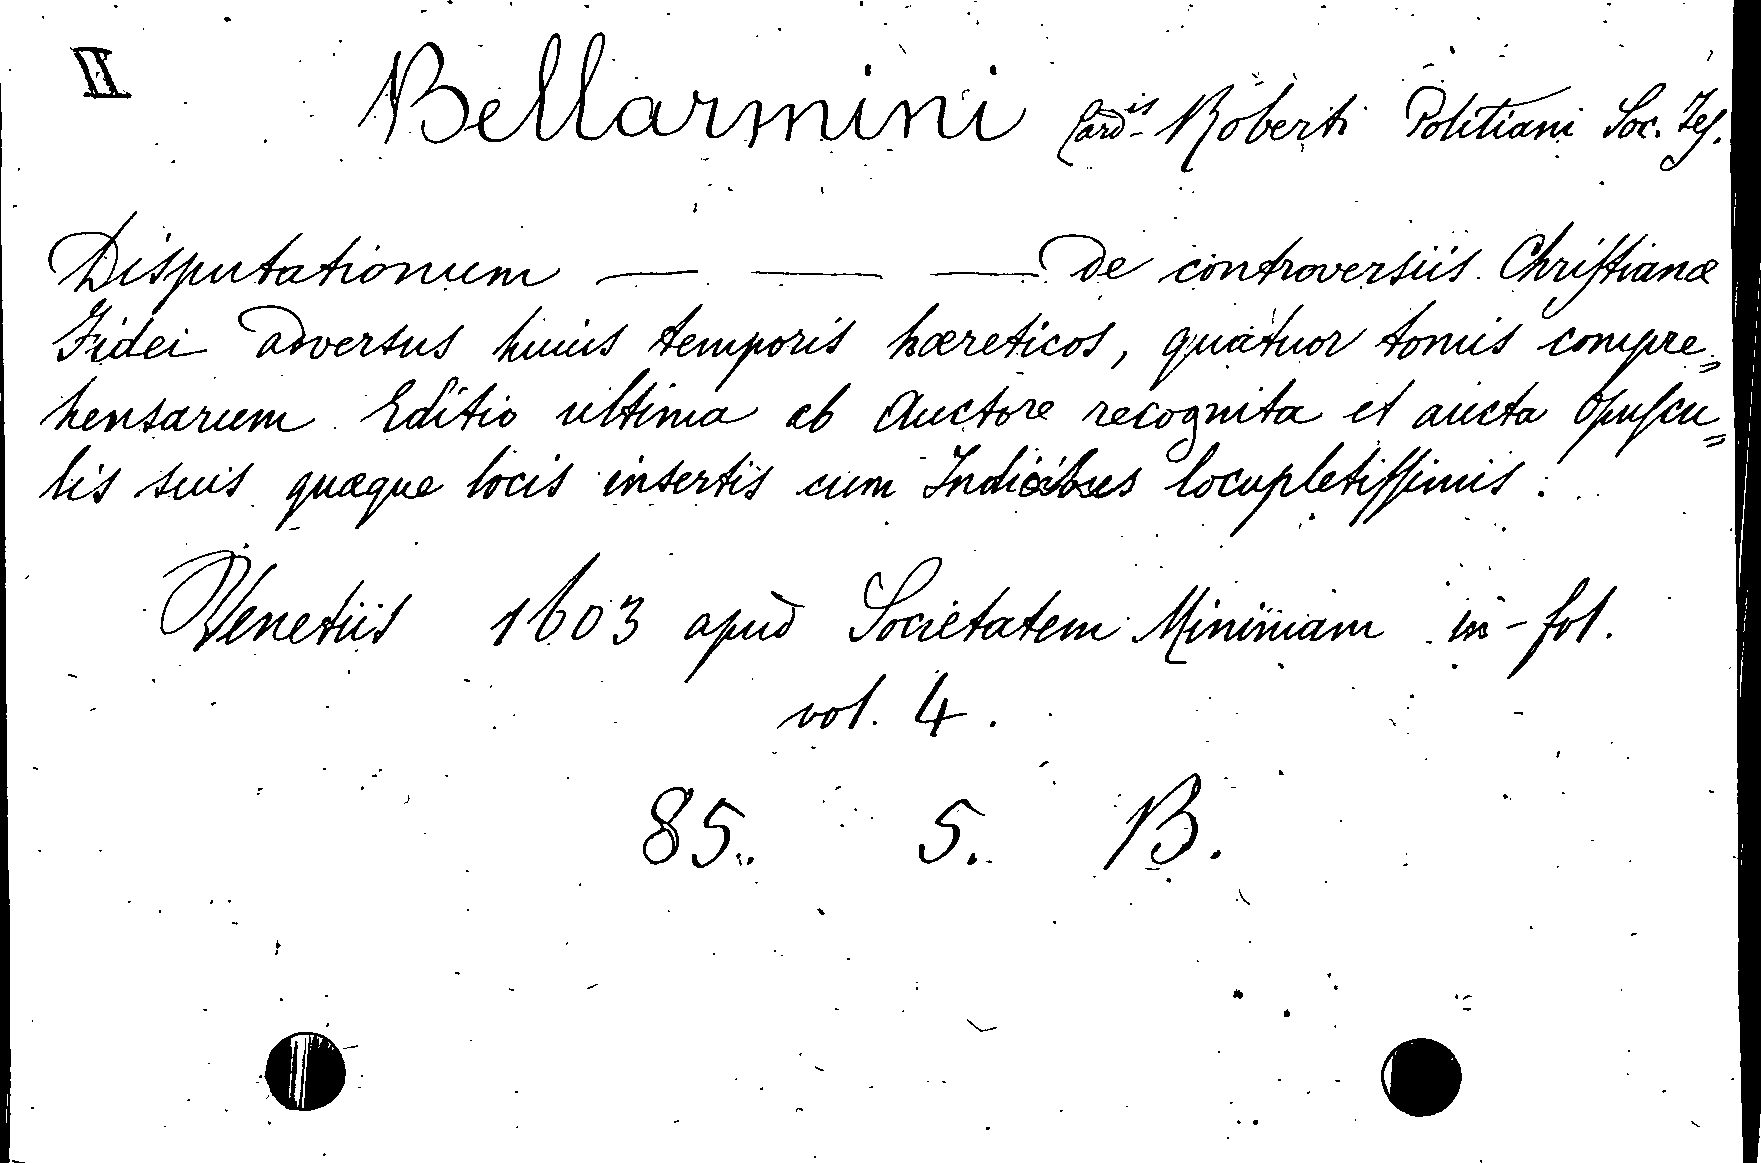 II Bellarmini Card.is Roberti Politiani Soc. Jes.
Disputationum — — — De controversiis Christianæ
Fidei adversus huius temporis hæreticos, quatuor tomis compre„
hensarum Editio ultima ab Auctore recognita et aucta Opuscu„
lis suis quæque locis insertis cum Indicibus locupletissimis.
Venetiis 1603 apud Societatem Minimam in-fol.
vol. 4.
85. 5. B.